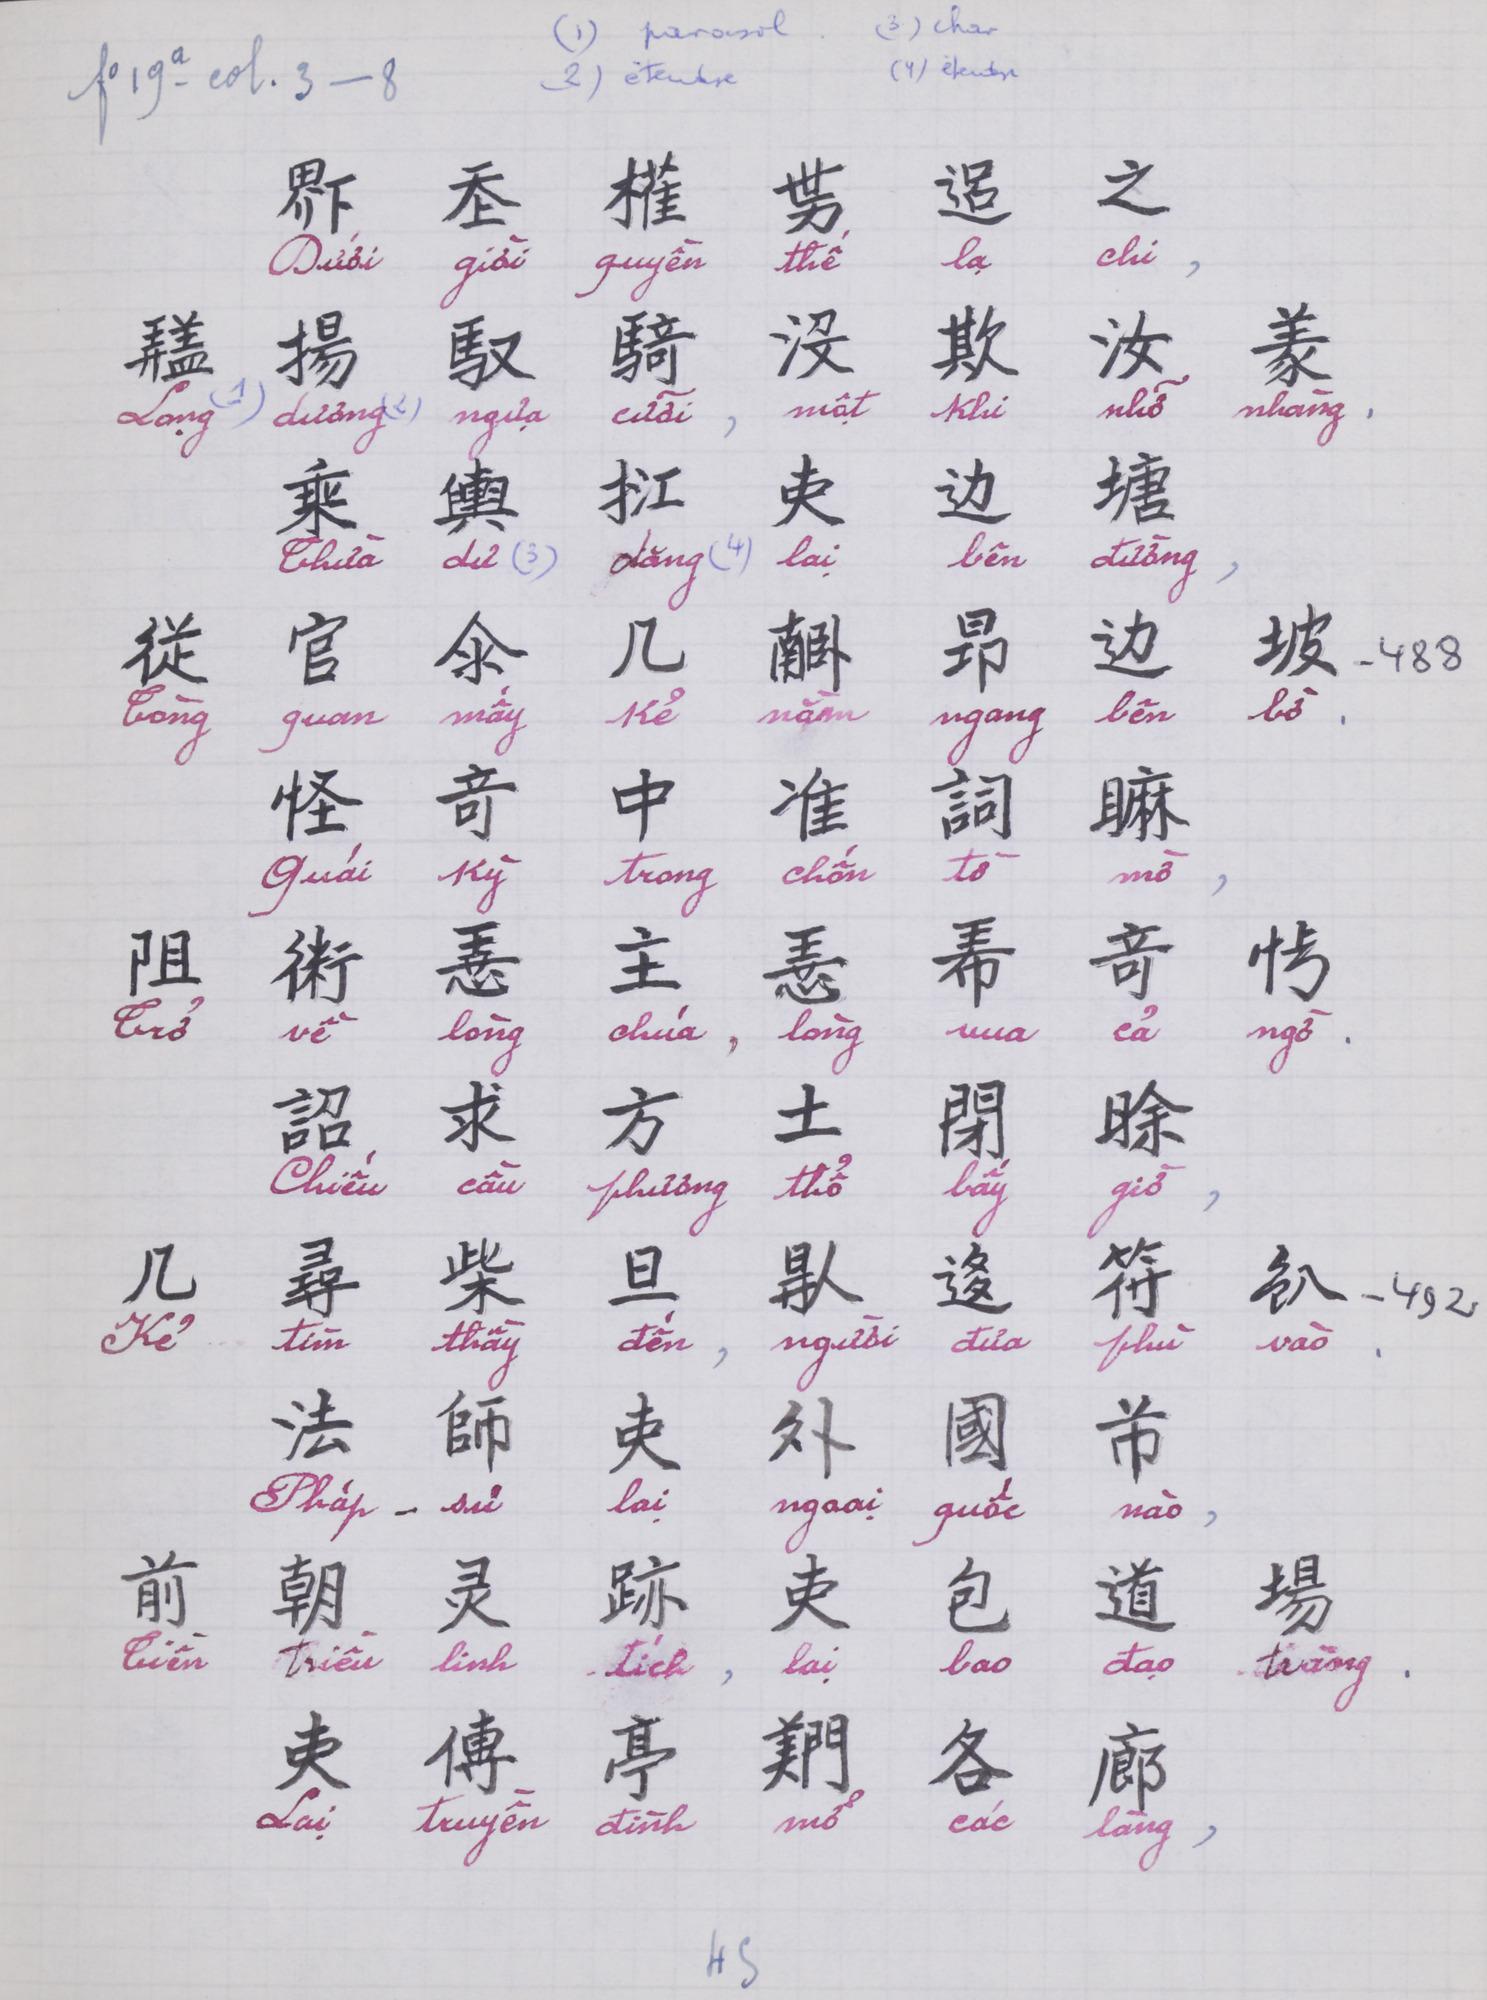 (1) parasol. (3) char
fº 19ª- col. 3 – 8
2) étendre (4) étendre
𤲂 𡗶 權 势 𨓐 之
Dưới giời quyền thế lạ chi,
揚 馭 騎 没 欺 汝 𦬑
Lọng(1) dương(2) ngựa cưỡi, một khi nhỡ nhàng.
乘 輿 扛 吏 边 塘
Thừa dư (3) dăng(4) lại bên đường,
從 官 氽 几 昂 边 坡 -488
Tòng quan mấy kẻ nằm ngang bên bờ.
怪 竒 中 准 詞 𥊚
Quái kỳ trong chốn tờ mờ,
阻 術 𢚸 主 𢚸 𢂜 竒 𢗼
Trở về lòng chúa, lòng vua cả ngờ.
詔 求 方 土 閉 𪰛
Chiếu cầu phương thổ bấy giờ,
几 尋 柴 旦 𠊛 迻 符 𠓨 -492
Kẻ tìm thầy đến, người đưa phù vào.
法 師 吏 外 國 芇
Pháp - sư lại ngoại quốc nào,
前 朝 灵 跡 吏 包 道 場
Tiền triều linh tích, lại bao đạo tràng.
吏 傳 亭 𨷑 各 廊
Lại truyền đình mở các làng,
45